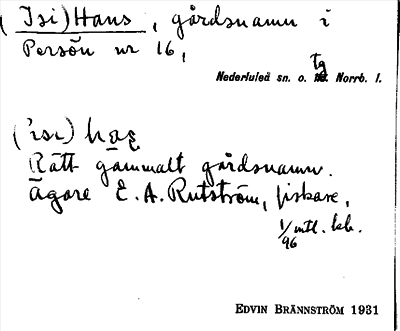 (Isi)Hans, gårdsnamn i
Persön nr 16,
tg
Nederluleå sn. o. Norrb. l.
('isi) 
Rätt gammalt gårdsnamn.
Ägare E. A. Rutström, fiskare,
1/96 mtl. kb.
EDVIN BRÄNNSTRÖM 1931